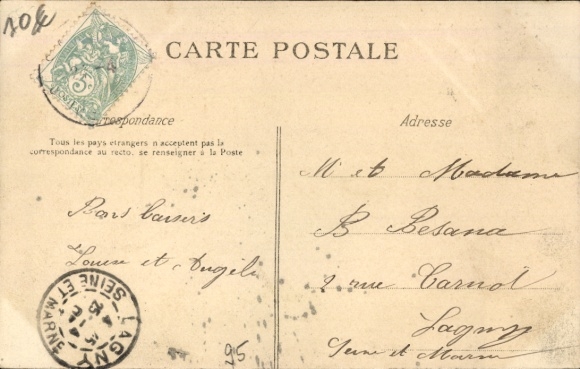 20f
CARTE POSTALE
Correspondance
Adresse
Tous les pays étrangers n acceptent pas la
correspondance au recto. se renseigner à la Poste
M et Madame
B Besana
2 rue Carnot
Lagny
Seine et Marne
Bons baisers
Louise et Angèle
LAGNY
SEINE ET MARNE
95